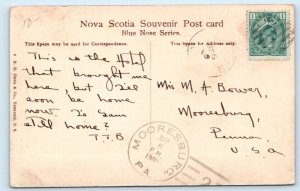 Nova Scotia Souvenir Post card
Blue Nose Series.
This Space may be used for Correspondence.
This Space for Address only.
This is the Hotel
that brought me
here but I'll
soon be home
now. Is Sam
still home?
T.T.B
Miss M. A. Bower,
Mooresburg
Penna
U.S.A
MOORESBURG
P M
190
PA.
1
1